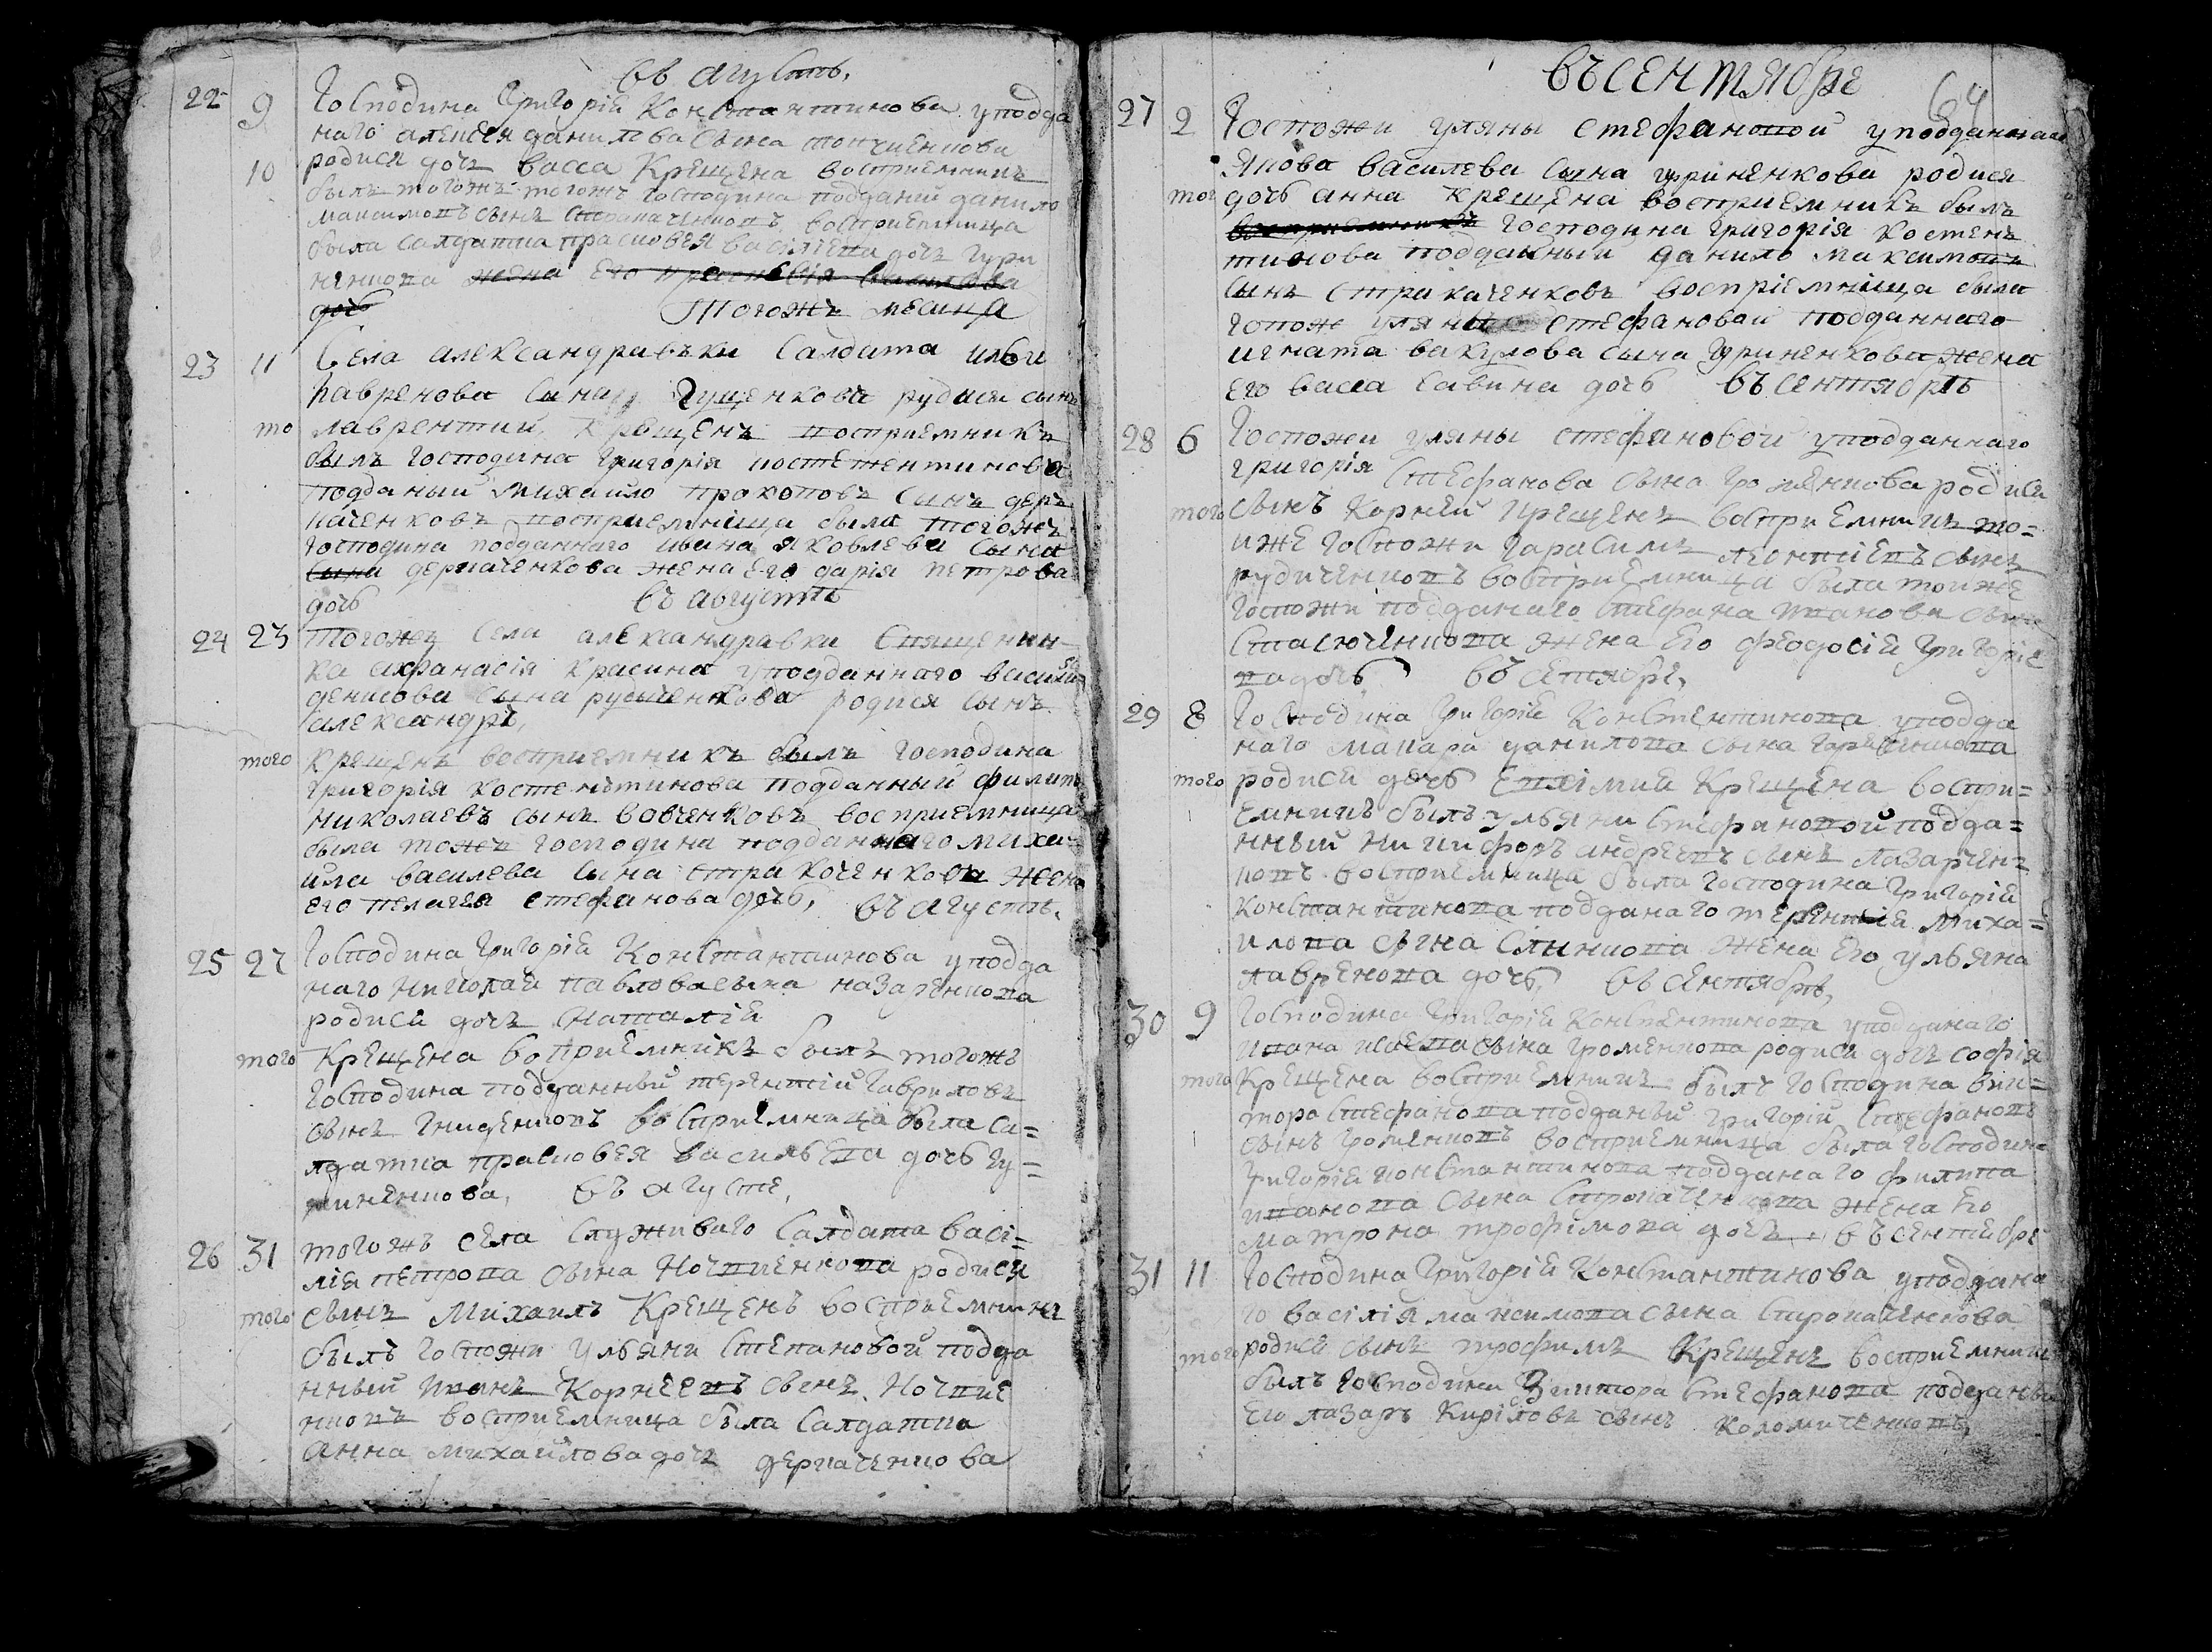 въ агустъ,
22 9 Господина Григорія Константинова у подда
наго алексея данилева сына
10 родися дочъ васса Крещена восприемникъ
былъ тогожъ господина поддании данило
максимовъ сынъ Стракаченковъ восприемница
была салдатка прасковея василіева дочъ гури
ненкова жена его
дочъ Тогожъ месица
23 11 Села александравъки Салдата ильи
лавренова сына Гущенкова рудися сынъ
то лаврентии Крещенъ восприемникъ
былъ господина григорія костентентинова
подданыи михаило прокоповъ синъ дер
каченковъ восприемніца была тогожъ
господина подданнаго ивана яковлева сына
сына деркаченкова жена его дарія петрова
дочь въ августъ
24 23 тогожъ села александравки Священни-
ка афанасія красина у подданнаго василя
денисова сына русченкова родися сынъ
александръ,
того крещенъ восприемникъ былъ господина
григорія костентинова подданный филипъ
николаевъ сынъ вовченковъ восприемница
была тожъ господина подданнаго миха-
ила василева сына стракоченкова жена
его пелагея стефанова дочь, въ агустъ.
25 27 Господина Григорія Константинова у подда
наго николая павлова сына назаренкова
родися дочъ Наталія
того Крещена восприемникъ былъ тогожъ
господина подданный терентій Гавриловъ
сынъ Гниденковъ восприемница была са=
лдатка прасковея васильева дочь гу=
риненкова, въ агусте,
26 31 тогожъ села Служиваго Салдата васі=
лія петрова сына Ночвиенкова родися
того сынъ михаилъ Крещенъ восприемникъ
былъ госпожи ульяни Степановой подда
нный иванъ Корнеевъ сынъ Ночвие
нковъ восприемница была Салдатка
анна михайлова дочъ деркаченкова
въ сентябре 64
27 2 Госпожи уляны стефановой у подданнаго
якова василева сына гуриненкова родися
того дочь анна крещена восприемникъ былъ
восприемникъ господина григорія костен
тинова подданный данило максимовъ
сынъ стракаченковъ воспріемніща была
гопоже уляны стефановои подданнаго
игната вакулова сына гуриненкова жена
его васса савина дочь въ сентяорть
28 6 Госпожи уляны стефановой у подданнаго
григорія Стефанова сына громенкова родися
того сынъ Корней крещенъ восприемникъ то=
иже госпожи гарасимъ леонтіевъ сынъ
рудиченковъ восприемница была тоиже
госпожи подданаго стефана иванова сына
Стасюченкова жена его феодосія григорие
ва дочь въ сетябре,
29 8 Господина григорія Константинова у подда
наго макара данилова сына
того родися дочь Евѳімия Крещена воспри=
емникъ былъ ульяни стефановой подда=
нный никифоръ андреевъ сынъ лазарен=
ковъ восприемница была господина григорія
константинова подданаго терентія миха=
илова сына Слинкова жена его ульяна
лавренова дочь, въ сентябръ,
30 9 Господина григорія Константинова у подданаго
ивана исаева сына громенкова родися дочъ софія
того Крещена восприемникъ былъ господина вик=
тора Стефанова подданый григорій Стефановъ
сынъ громенковъ восприемница была господин
григорія константинова подданаго филипа
иванова сына Строкаченкова жена его
матрона трофімова дочъ въ сентебре
31 11 Господина григорія Константинова у поддана
го васілія максимова сына Строкаченкова
того родися сынъ трофимъ Крещенъ восприемникъ
былъ господина Виктора Стефанова подданы
его лазаръ Киріловъ сынъ коломиченковъ,